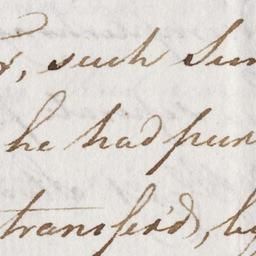 , such Sum
he had pur
transfer'd, by